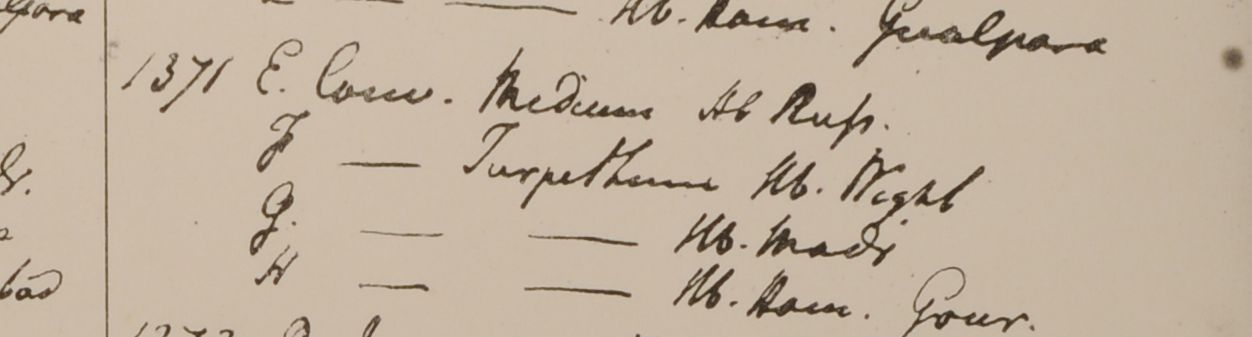 Hb. Ham. Gualpara
1371 E. Conv. Medium Hb Russ.
F — Turpethum Hb. Wight
G. — — Hb. Madr
H — — Hb. Ham. Gour.